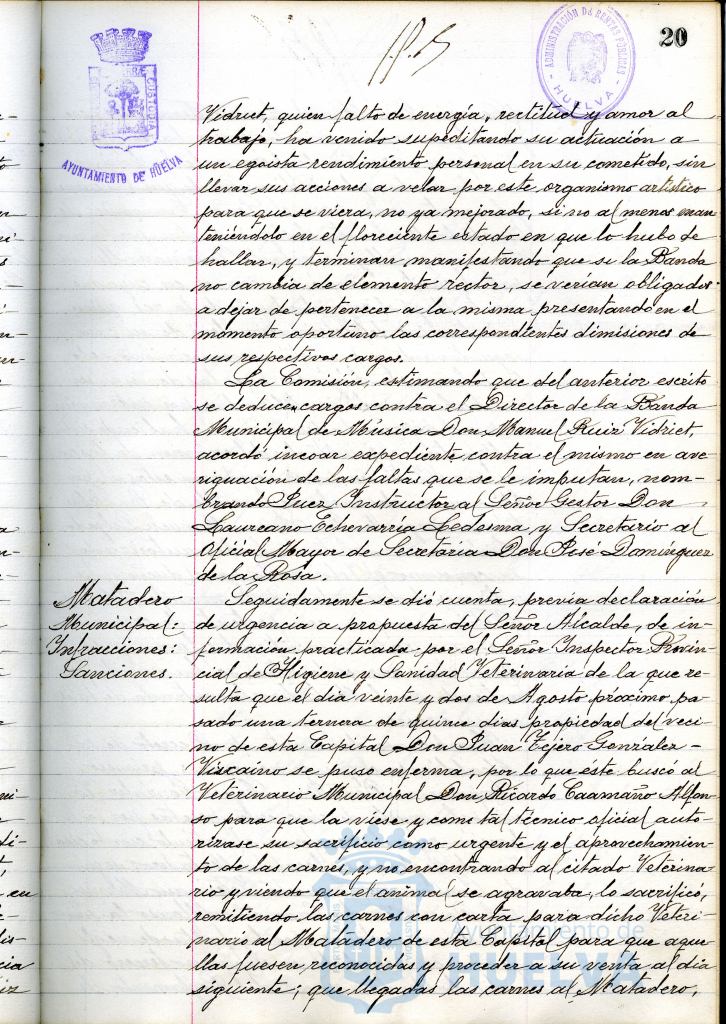 20
AYUNTAMIENTO DE HUELVA
ADMINISTRACIÓN DE RENTAS PÚBLICAS
HUELVA
Vidriet, quien falto de energía, rectitud y amor al
trabajo, ha venido supeditando su actuación a
un egoista rendimiento personal en su cometido, sin
llevar sus acciones a velar por este organismo artístico
para que se viera, no ya mejorado, si no al menos man
teniéndolo en el floreciente estado en que lo hubo de
hallar, y terminan manifestando que si la Banda
no cambia de elemento rector, se verían obligados
a dejar de pertenecer a la misma presentando en el
momento oportuno las correspondientes dimisiones de
sus respectivos cargos.
La Comisión, estimando que del anterior escrito
se deducen cargos contra el Director de la Banda
Municipal de Música Don Manuel Ruiz Vidriet,
acordó incoar expediente contra el mismo en ave
riguación de las faltas que se le imputan, nom-
brando Juez Instructor al Señor Gestor Don
Laureano Echevarría Ledesma, y Secretario al
Oficial Mayor de Secretaria Don José Domínguez
de la Rosa.
Matadero
Municipal:
Infracciones:
Sanciones.
Seguidamente se dió cuenta, previa declaración
de urgencia a propuesta del Señor Alcalde, de in-
formación practicada por el Señor Inspector Provin-
cial de Higiene y Sanidad Veterinaria de la que re-
sulta que el dia veinte y dos de Agosto próximo pa-
sado una ternera de quince dias propiedad del veci-
no de esta Capital Don Juan Tejero Gonzalez-
Vizcaino se puso enferma, por lo que éste buscó al
Veterinario Municipal Don Ricardo Caamaño Alfon-
so para que la viese y como tal técnico oficial auto-
rizase su sacrificio como urgente y el aprovechamien-
to de las carnes, y no encontrando al citado Veterina-
rio y viendo que el animal se agravaba, lo sacrificó,
remitiendo las carnes con carta para dicho Veteri-
nario al Matadero de esta Capital para que aque-
llas fuesen reconocidas y proceder a su venta al dia
siguiente; que llegadas las carnes al Matadero,
Ayuntamiento de
HUELVA